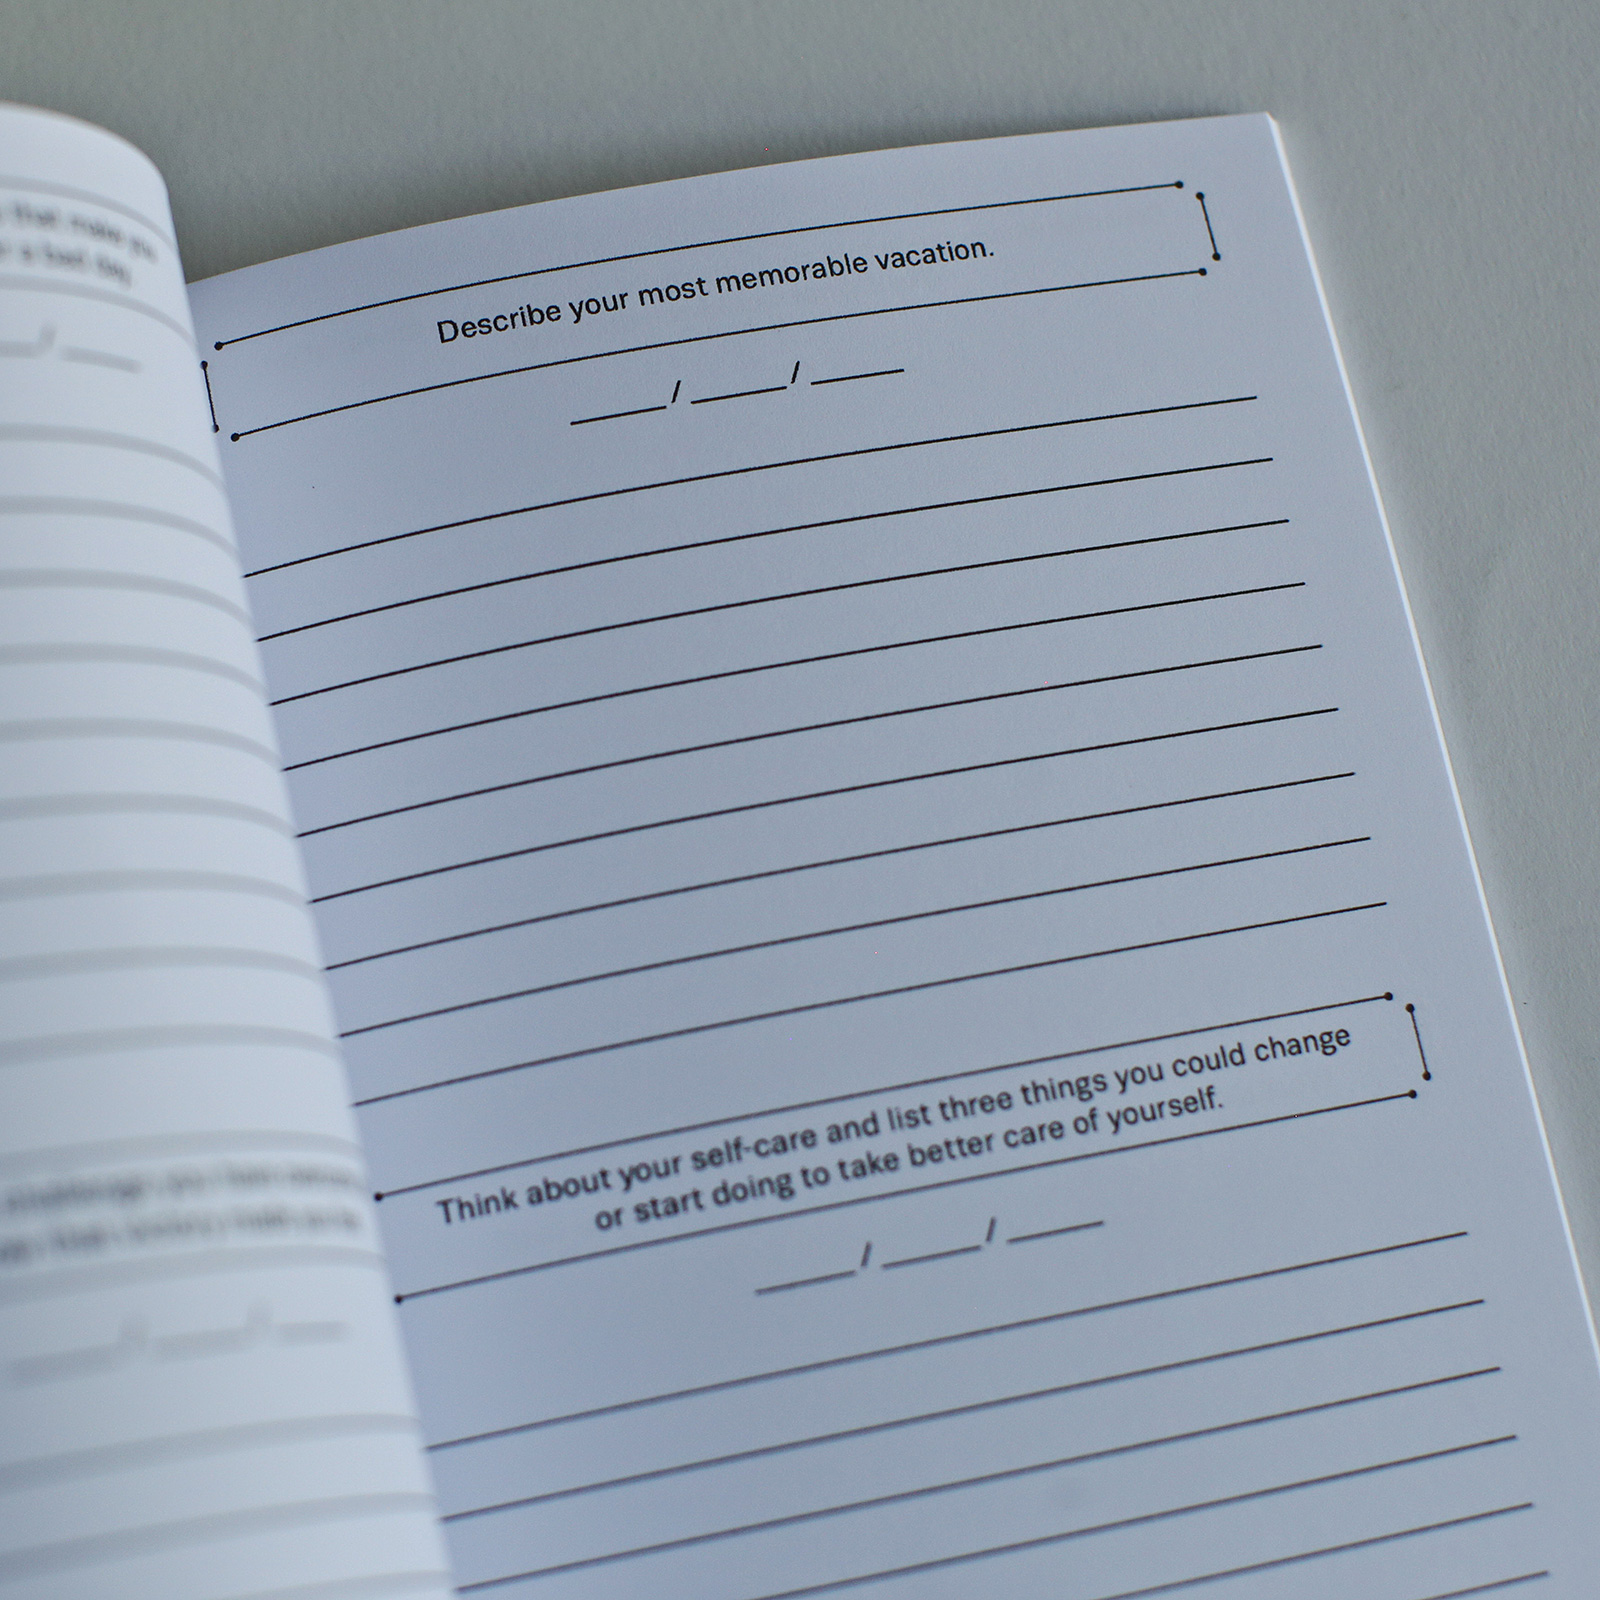 that make you
a bad day
Describe your most memorable vacation.
___/___/___
Think about your self-care and list three things you could change
or start doing to take better care of yourself.
___/___/___